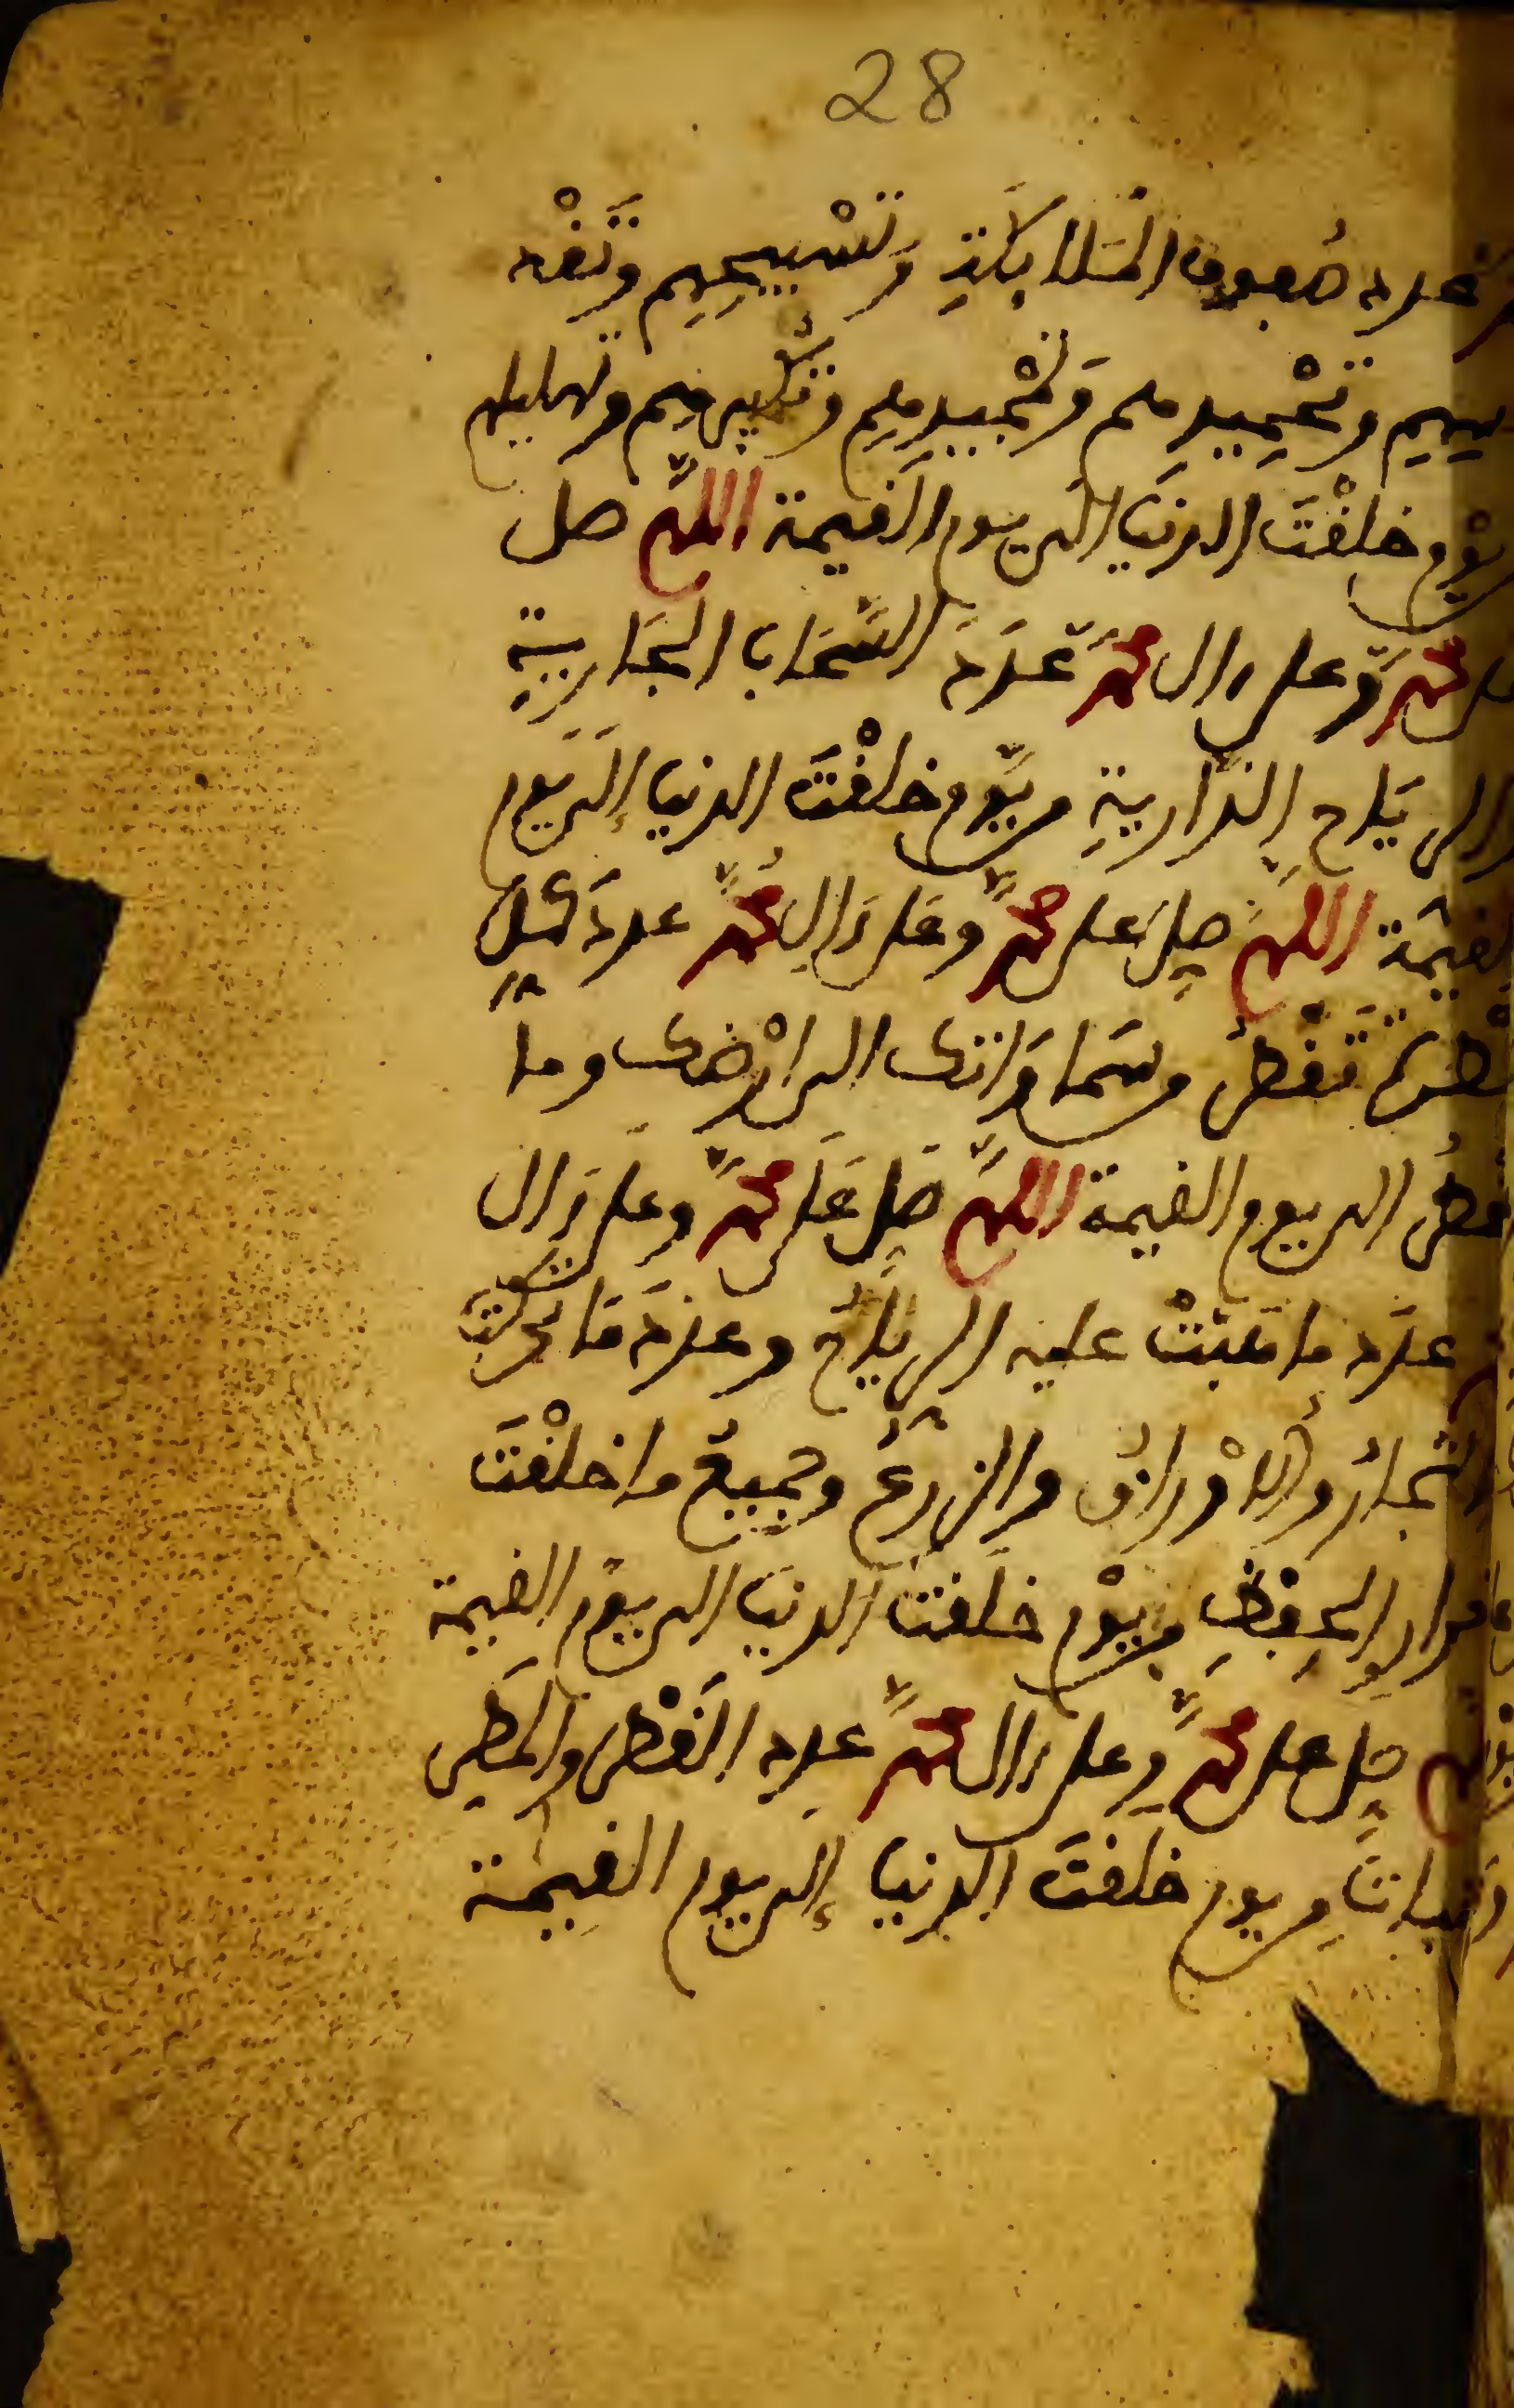 28
عدد صفوف الملائكة وتسبيحهم وتقد
يسهم وتحميدهم وتمجيدهم وتكبيرهم وتهليلهم
يوم خلقت الدنيا الى يوم القيمة اللهم صل
على محمد وعلى ءال محمد عدد السحاب الجارية
والرياح الذارية من يوم خلقت الدنيا إلى يوم
القيمة اللهم صل على محمد وعلى ءال محمد عدد كل
قطرة تقطر من سماواتك الى ارضك وما
تقطر الى يوم القيمة اللهم صل على محمد وعلى ءال
عدد ما هبت عليه الرياح وعدد ما تحركت
الاشجار والاوراق والزرع وجميع ما خلقت
قرار الحفظ من يوم خلقت الدنيا الى يوم القيمة
صل على محمد وعلى ءال محمد عدد القطر والمطر
والنبات من يوم خلقت الدنيا إلى يوم القيمة